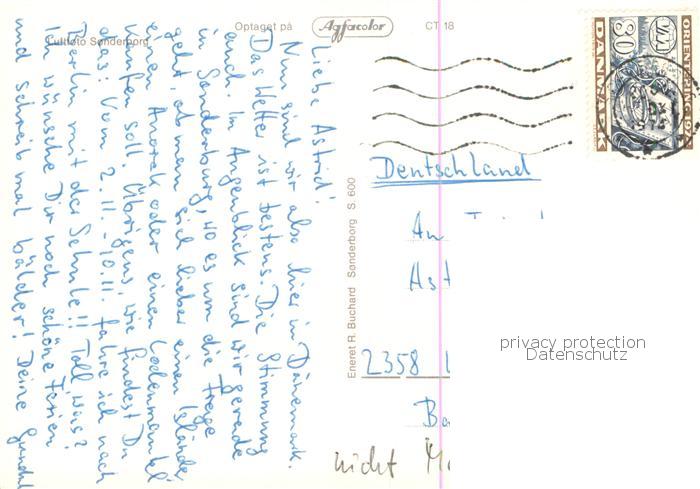 Luftfoto Sønderborg
Optaget på Agfacolor CT 18
GRØNLAND
80
DANMARK
Liebe Astrid!
Nun sind wir also hier in Dänemark.
Das Wetter ist bestens. Die Stimmung
auch. Im Augenblick sind wir gerade
in Sonderburg, wo es um die Frage
geht, ob man sich lieber einen Isländer
einen Anorak oder einen Lodenmantel
kaufen soll. Übrigens, wie findest Du
das: Vom 2.11.-10.11. fahre ich nach
Berlin mit der Schule!! Toll, was?
Ich wünsche Dir noch schöne Ferien
und schreib mal bälder! Deine
Eneret R. Buchard Sønderborg S. 600
Deutschland
An
Ast
2358
Ba
nicht
privacy protection
Datenschutz